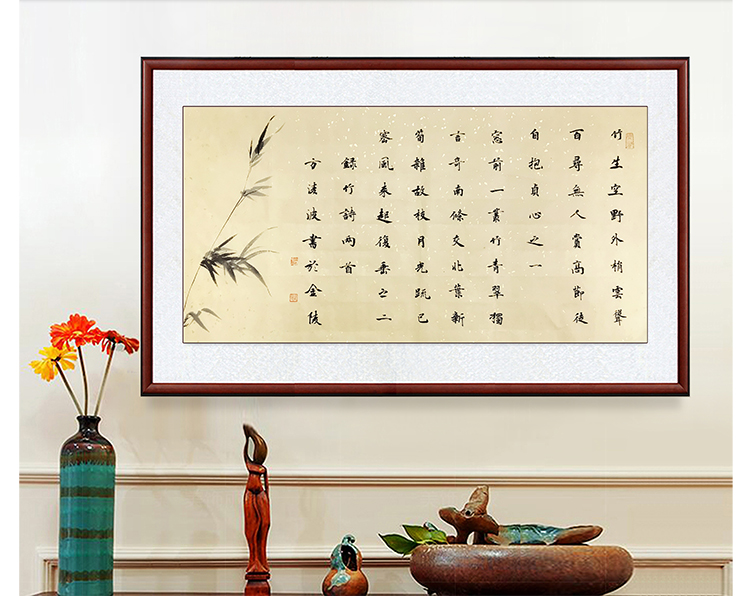 竹生空野外梢雲聳
百尋無人賞高節徒
自抱貞心之一
窓前一叢竹青翠獨
言奇南條交北葉新
筍雜故枝月光疏已
密風來起復垂之二
錄竹詩兩首
方波書於金陵